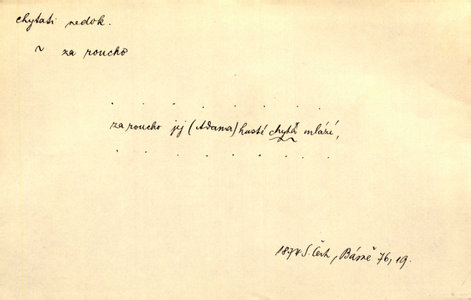 chytati nedok.
~ za roucho
. . . . . . .
za roucho jej (Adama) husté chytá mlází,
. . . . . . .
1874 S. Čech, Básně 76, 19.